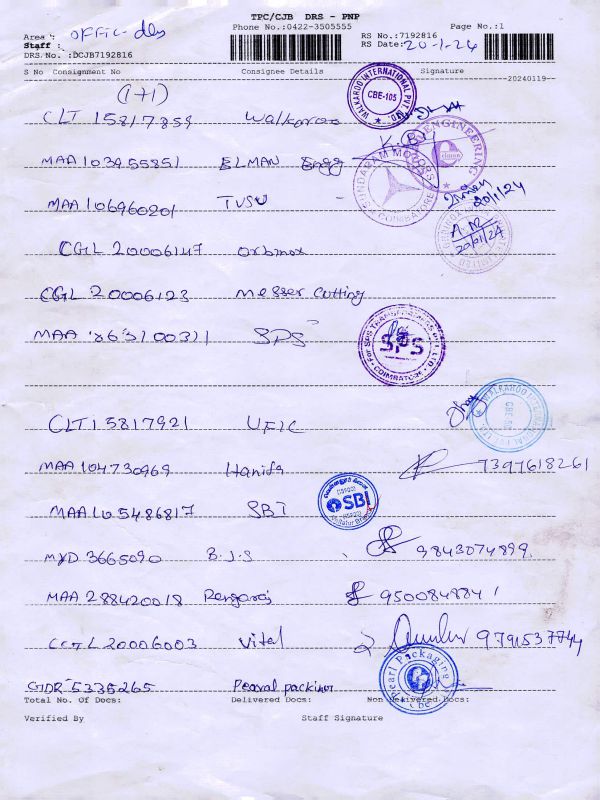 TPC/CJB DRS - PNP
Phone No.:0422-3505555 Page No.:1
Area :
Staff : RS No.:7192816
DRS/No. :DCJB7192816 RS Date: 20-1-24
S No Consignment No Consignee Details Signature
20240119
(1+1)
CLT 15817859 Walkaroo
WALKAROO INTERNATIONAL PVT. LTD. CBE-105
MAA 103955851 ELMAN Engg
ENGINEERING
SUNDARAM MOTORS COIMBATORE
MAA 106960201 TVSU
20/1/24
CGL 20006147 Orbinox
20/01/24
CGL 20006123 Messer Cutting
MAA 863100311 SPS
For SPS TRANSFORMERS PVT. LTD. SPS COIMBATORE
CLT15817921 UFIC
WALKAROO INTERNATIONAL PVT LTD
MAA 104730969 Hanifa 7397618261
MAA105486817 SBI
SBI
MYD 3665090 B.J.S 9843074899
MAA 288420018 Rengaraj 950084884 1
CGL20006003 Vital 9791537744
Pearl Packaging CBE
GDR 5335265 Pearval packinor
Total No. Of Docs: Delivered Docs: Non Delivered Docs:
Verified By Staff Signature